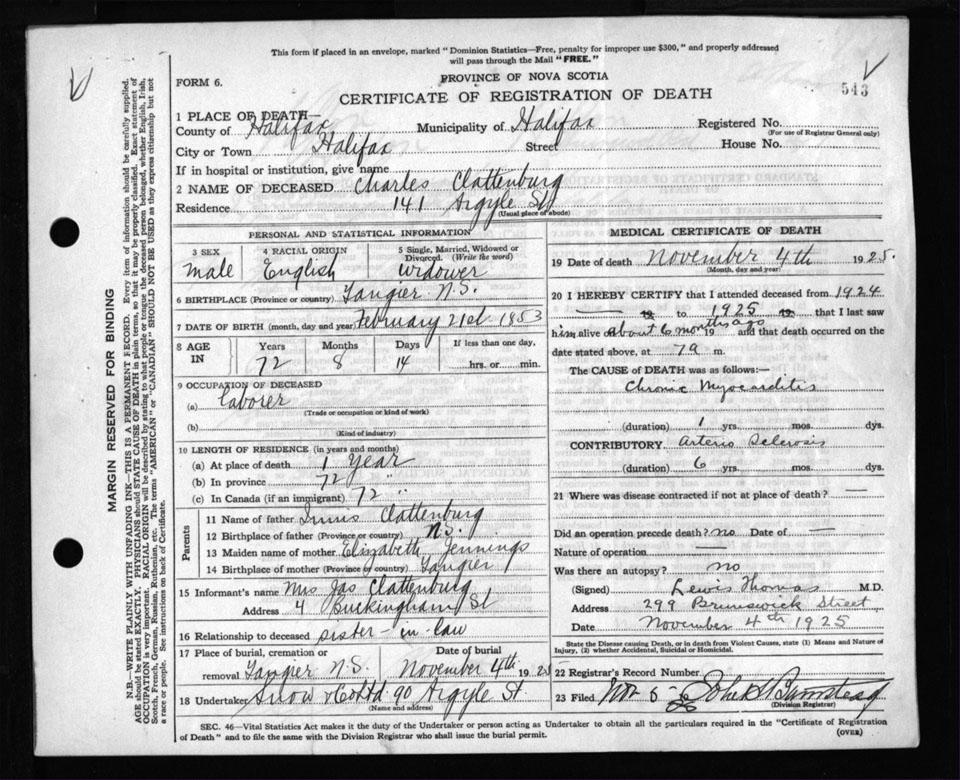 This form if placed in an envelope, marked "Dominion Statistics—Free, penalty for improper use $300," and properly addressed
will pass through the Mail "FREE."
FORM 6.
PROVINCE OF NOVA SCOTIA
543
CERTIFICATE OF REGISTRATION OF DEATH
1 PLACE OF DEATH—
County of Halifax Municipality of Halifax Registered No.
(For use of Registrar General only)
City or Town Halifax Street House No.
If in hospital or institution, give name
2 NAME OF DECEASED Charles Clattenburg
Residence 141 Argyle St
(Usual place of abode)
PERSONAL AND STATISTICAL INFORMATION
3 SEX 4 RACIAL ORIGIN 5 Single, Married, Widowed or Divorced. (Write the word)
Male English Widower
6 BIRTHPLACE (Province or country) Tangier N.S.
7 DATE OF BIRTH (month, day and year) February 21st 1853
8 AGE IN Years Months Days If less than one day,
72 8 14 hrs. or min.
9 OCCUPATION OF DECEASED
(a) Laborer
(Trade or occupation or kind of work)
(b)
(Kind of industry)
10 LENGTH OF RESIDENCE (in years and months)
(a) At place of death 1 Year
(b) In province 72 "
(c) In Canada (if an immigrant) 72 "
Parents
11 Name of father Innis Clattenburg
12 Birthplace of father (Province or country) N.S.
13 Maiden name of mother Elizabeth Jennings
14 Birthplace of mother (Province or country) Tangier
15 Informant's name Mrs Jas Clattenburg
Address 4 Buckingham St
16 Relationship to deceased sister-in-law
17 Place of burial, cremation or Date of burial
removal Tangier N.S. November 4th 1925
18 Undertaker Snow & Co Ltd 90 Argyle St.
(Name and address)
MEDICAL CERTIFICATE OF DEATH
19 Date of death November 4th 1925.
(Month, day and year)
20 I HEREBY CERTIFY that I attended deceased from 1924
19 to 1925 19 that I last saw
him alive about 6 months ago 19 and that death occurred on
date stated above, at 7a m.
The CAUSE of DEATH was as follows:—
Chronic Myocarditis
(duration) 1 yrs. mos. ds.
CONTRIBUTORY Arterio Sclerosis
(duration) 6 yrs. mos. ds.
21 Where was disease contracted if not at place of death? —
Did an operation precede death? no Date of —
Nature of operation —
Was there an autopsy? no
(Signed) Lewis Thomas M.D.
Address 299 Brunswick Street
Date November 4th 1925
State the Disease causing Death, or in death from Violent Causes, state (1) Means and Nature of
Injury, (2) whether Accidental, Suicidal or Homicidal.
22 Registrar's Record Number
23 Filed Nov 5 John A Barnstead
(Division Registrar)
SEC. 46—Vital Statistics Act makes it the duty of the Undertaker or person acting as Undertaker to obtain all the particulars required in the "Certificate of Registration
of Death" and to file the same with the Division Registrar who shall issue the burial permit.
(OVER)
MARGIN RESERVED FOR BINDING
N.B.—WRITE PLAINLY WITH UNFADING INK—THIS IS A PERMANENT RECORD. Every item of information should be carefully supplied.
AGE should be stated EXACTLY. PHYSICIANS should STATE CAUSE OF DEATH in plain terms, so that it may be properly classified. Exact statement of
OCCUPATION is very important. RACIAL ORIGIN will be described by stating to what people or tongue the deceased person belonged, whether English, Irish,
Scotch, French, German, Russian, Ruthenian, etc. The terms "AMERICAN" or "CANADIAN" SHOULD NOT BE USED as they express citizenship but not
a race or people. See instructions on back of Certificate.